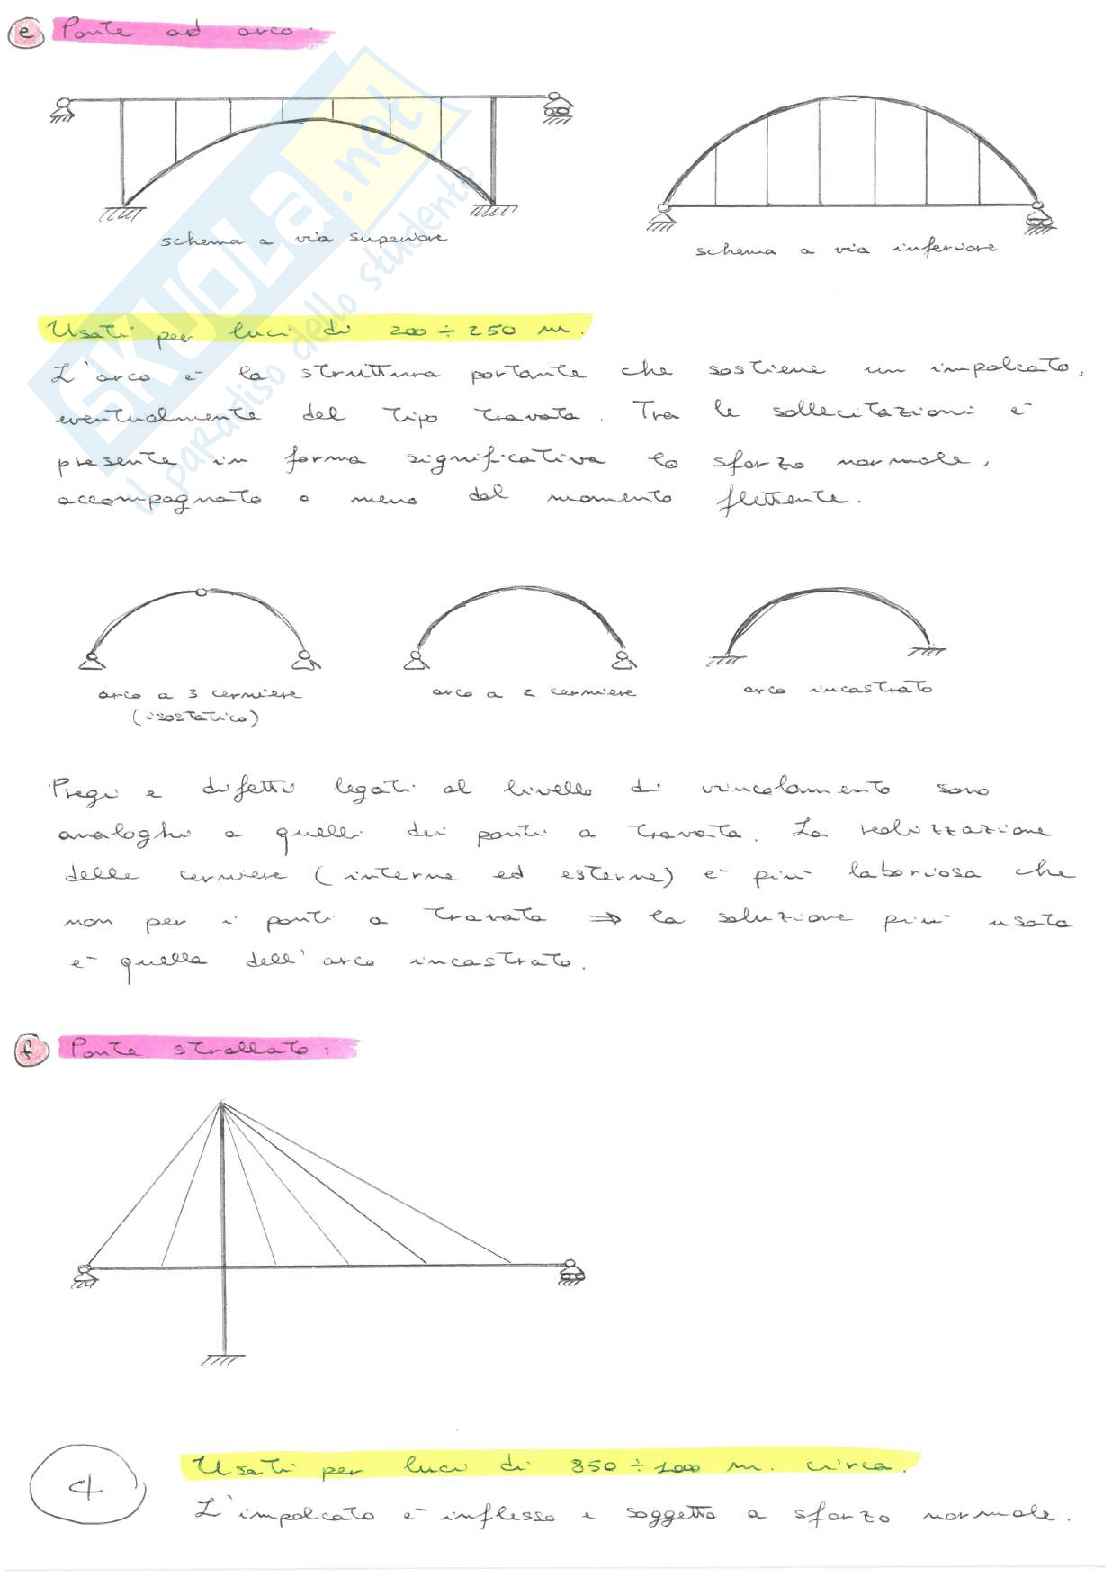 e Ponte ad arco.
SKUOLA.net
il paradiso dello studente
schema a via superiore
schema a via inferiore
Usati per luci di 200 ÷ 250 m.
L'arco è la struttura portante che sostiene un impalcato,
eventualmente del tipo travata. Tra le sollecitazioni è
presente in forma significativa lo sforzo normale,
accompagnato o meno dal momento flettente.
arco a 3 cerniere
(isostatico)
arco a 2 cerniere
arco incastrato
Pregi e difetti legati al livello di vincolamento sono
analoghi a quelli dei ponti a travata. La realizzazione
delle cerniere (interne ed esterne) è più laboriosa che
non per i ponti a travata ⇒ la soluzione più usata
è quella dell'arco incastrato.
f Ponte strallato:
4
Usati per luci di 850 ÷ 1000 m. circa.
L'impalcato è inflesso e soggetto a sforzo normale.